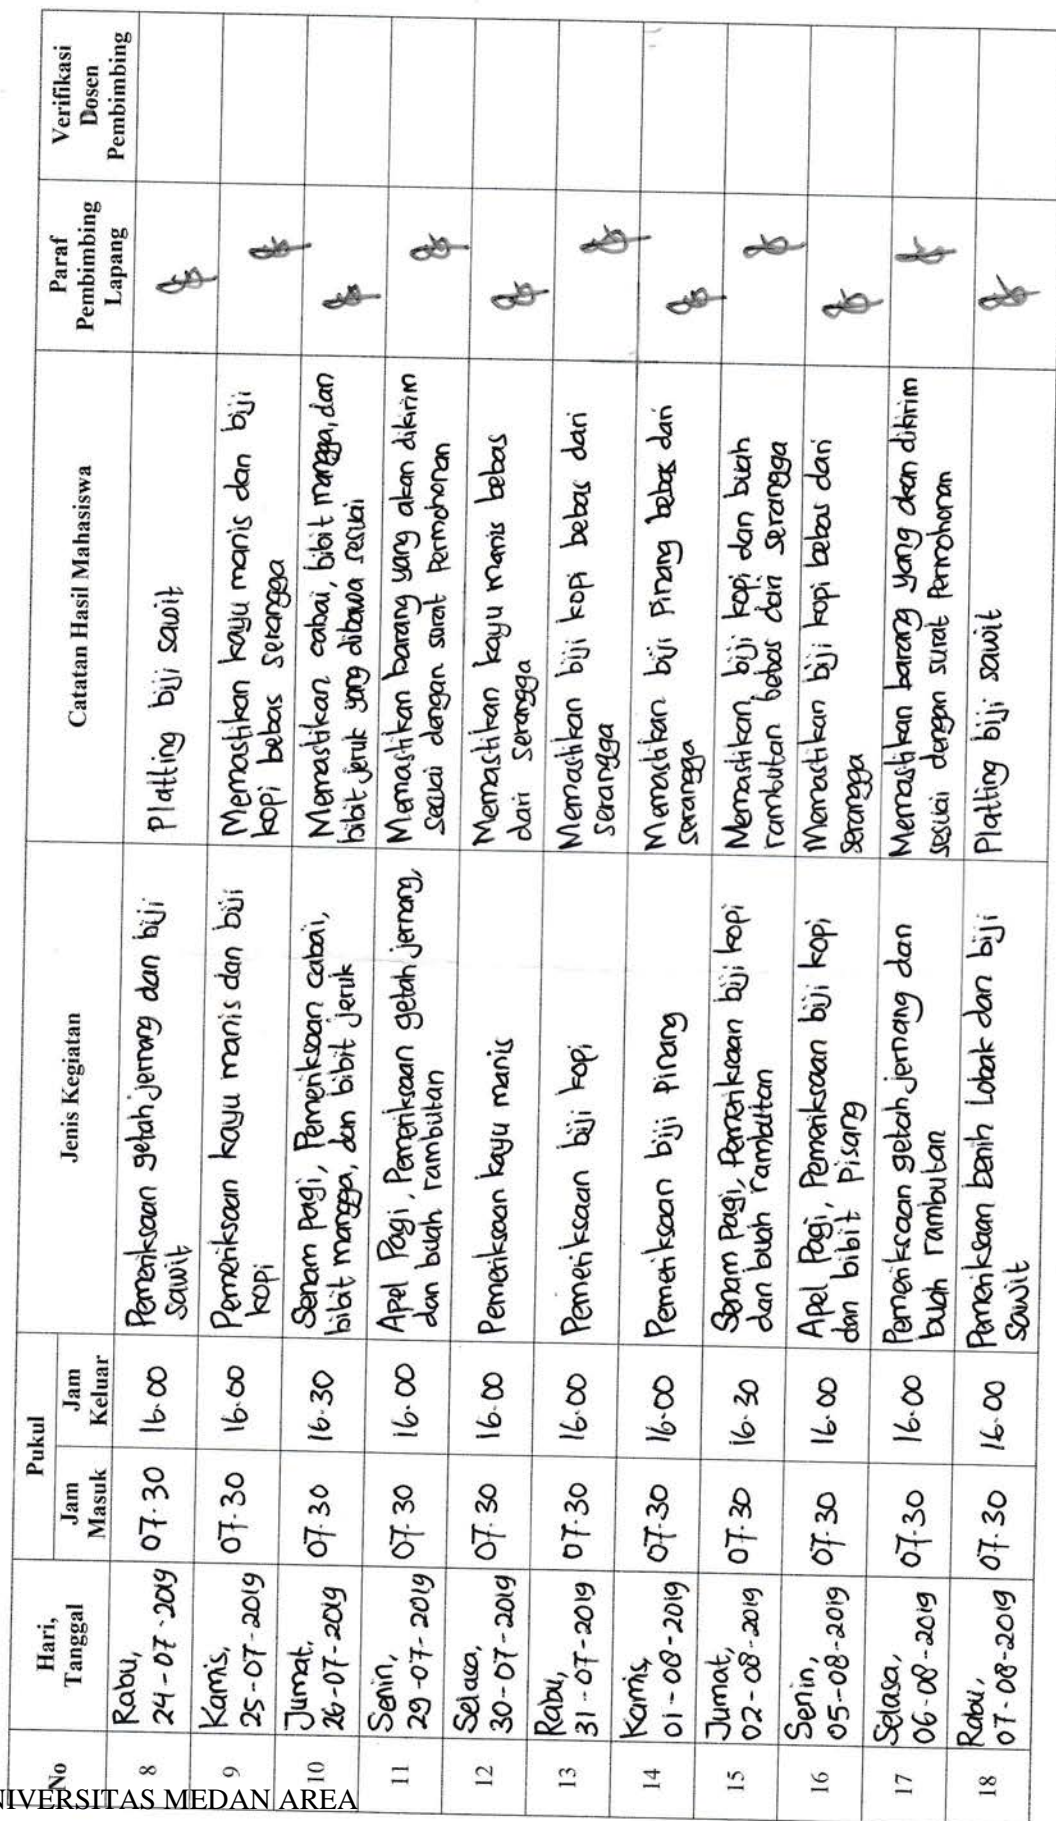 No
Hari,
Tanggal
Pukul
Jam
Masuk
Jam
Keluar
Jenis Kegiatan
Catatan Hasil Mahasiswa
Paraf
Pembimbing
Lapang
Verifikasi
Dosen
Pembimbing
8
Rabu,
24-07-2019
07.30
16.00
Pemeriksaan getah jernang dan biji
sawit
Platting biji sawit
9
Kamis,
25-07-2019
07.30
16.00
Pemeriksaan kayu manis dan biji
kopi
Memastikan kayu manis dan biji
kopi bebas serangga
10
Jumat,
26-07-2019
07.30
16.30
Senam Pagi, Pemeriksaan cabai,
bibit mangga, dan bibit jeruk
Memastikan cabai, bibit mangga, dan
bibit jeruk yang dibawa sesuai
11
Senin,
29-07-2019
07.30
16.00
Apel Pagi, Pemeriksaan getah jernang,
dan buah rambutan
Memastikan barang yang akan dikirim
sesuai dengan surat Permohonan
12
Selasa,
30-07-2019
07.30
16.00
Pemeriksaan kayu manis
Memastikan kayu manis bebas
dari serangga
13
Rabu,
31-07-2019
07.30
16.00
Pemeriksaan biji kopi
Memastikan biji kopi bebas dari
serangga
14
Kamis,
01-08-2019
07.30
16.00
Pemeriksaan biji Pinang
Memastikan biji Pinang bebas dari
serangga
15
Jumat,
02-08-2019
07.30
16.30
Senam Pagi, Pemeriksaan biji kopi
dan buah rambutan
Memastikan biji kopi dan buah
rambutan bebas dari serangga
16
Senin,
05-08-2019
07.30
16.00
Apel Pagi, Pemeriksaan biji kopi
dan bibit Pisang
Memastikan biji kopi bebas dari
serangga
17
Selasa,
06-08-2019
07.30
16.00
Pemeriksaan getah jernang dan
buah rambutan
Memastikan barang yang akan dikirim
sesuai dengan surat Permohonan
18
Rabu,
07-08-2019
07.30
16.00
Pemeriksaan benih Lobak dan biji
sawit
Platting biji sawit
NIVERSITAS MEDAN AREA